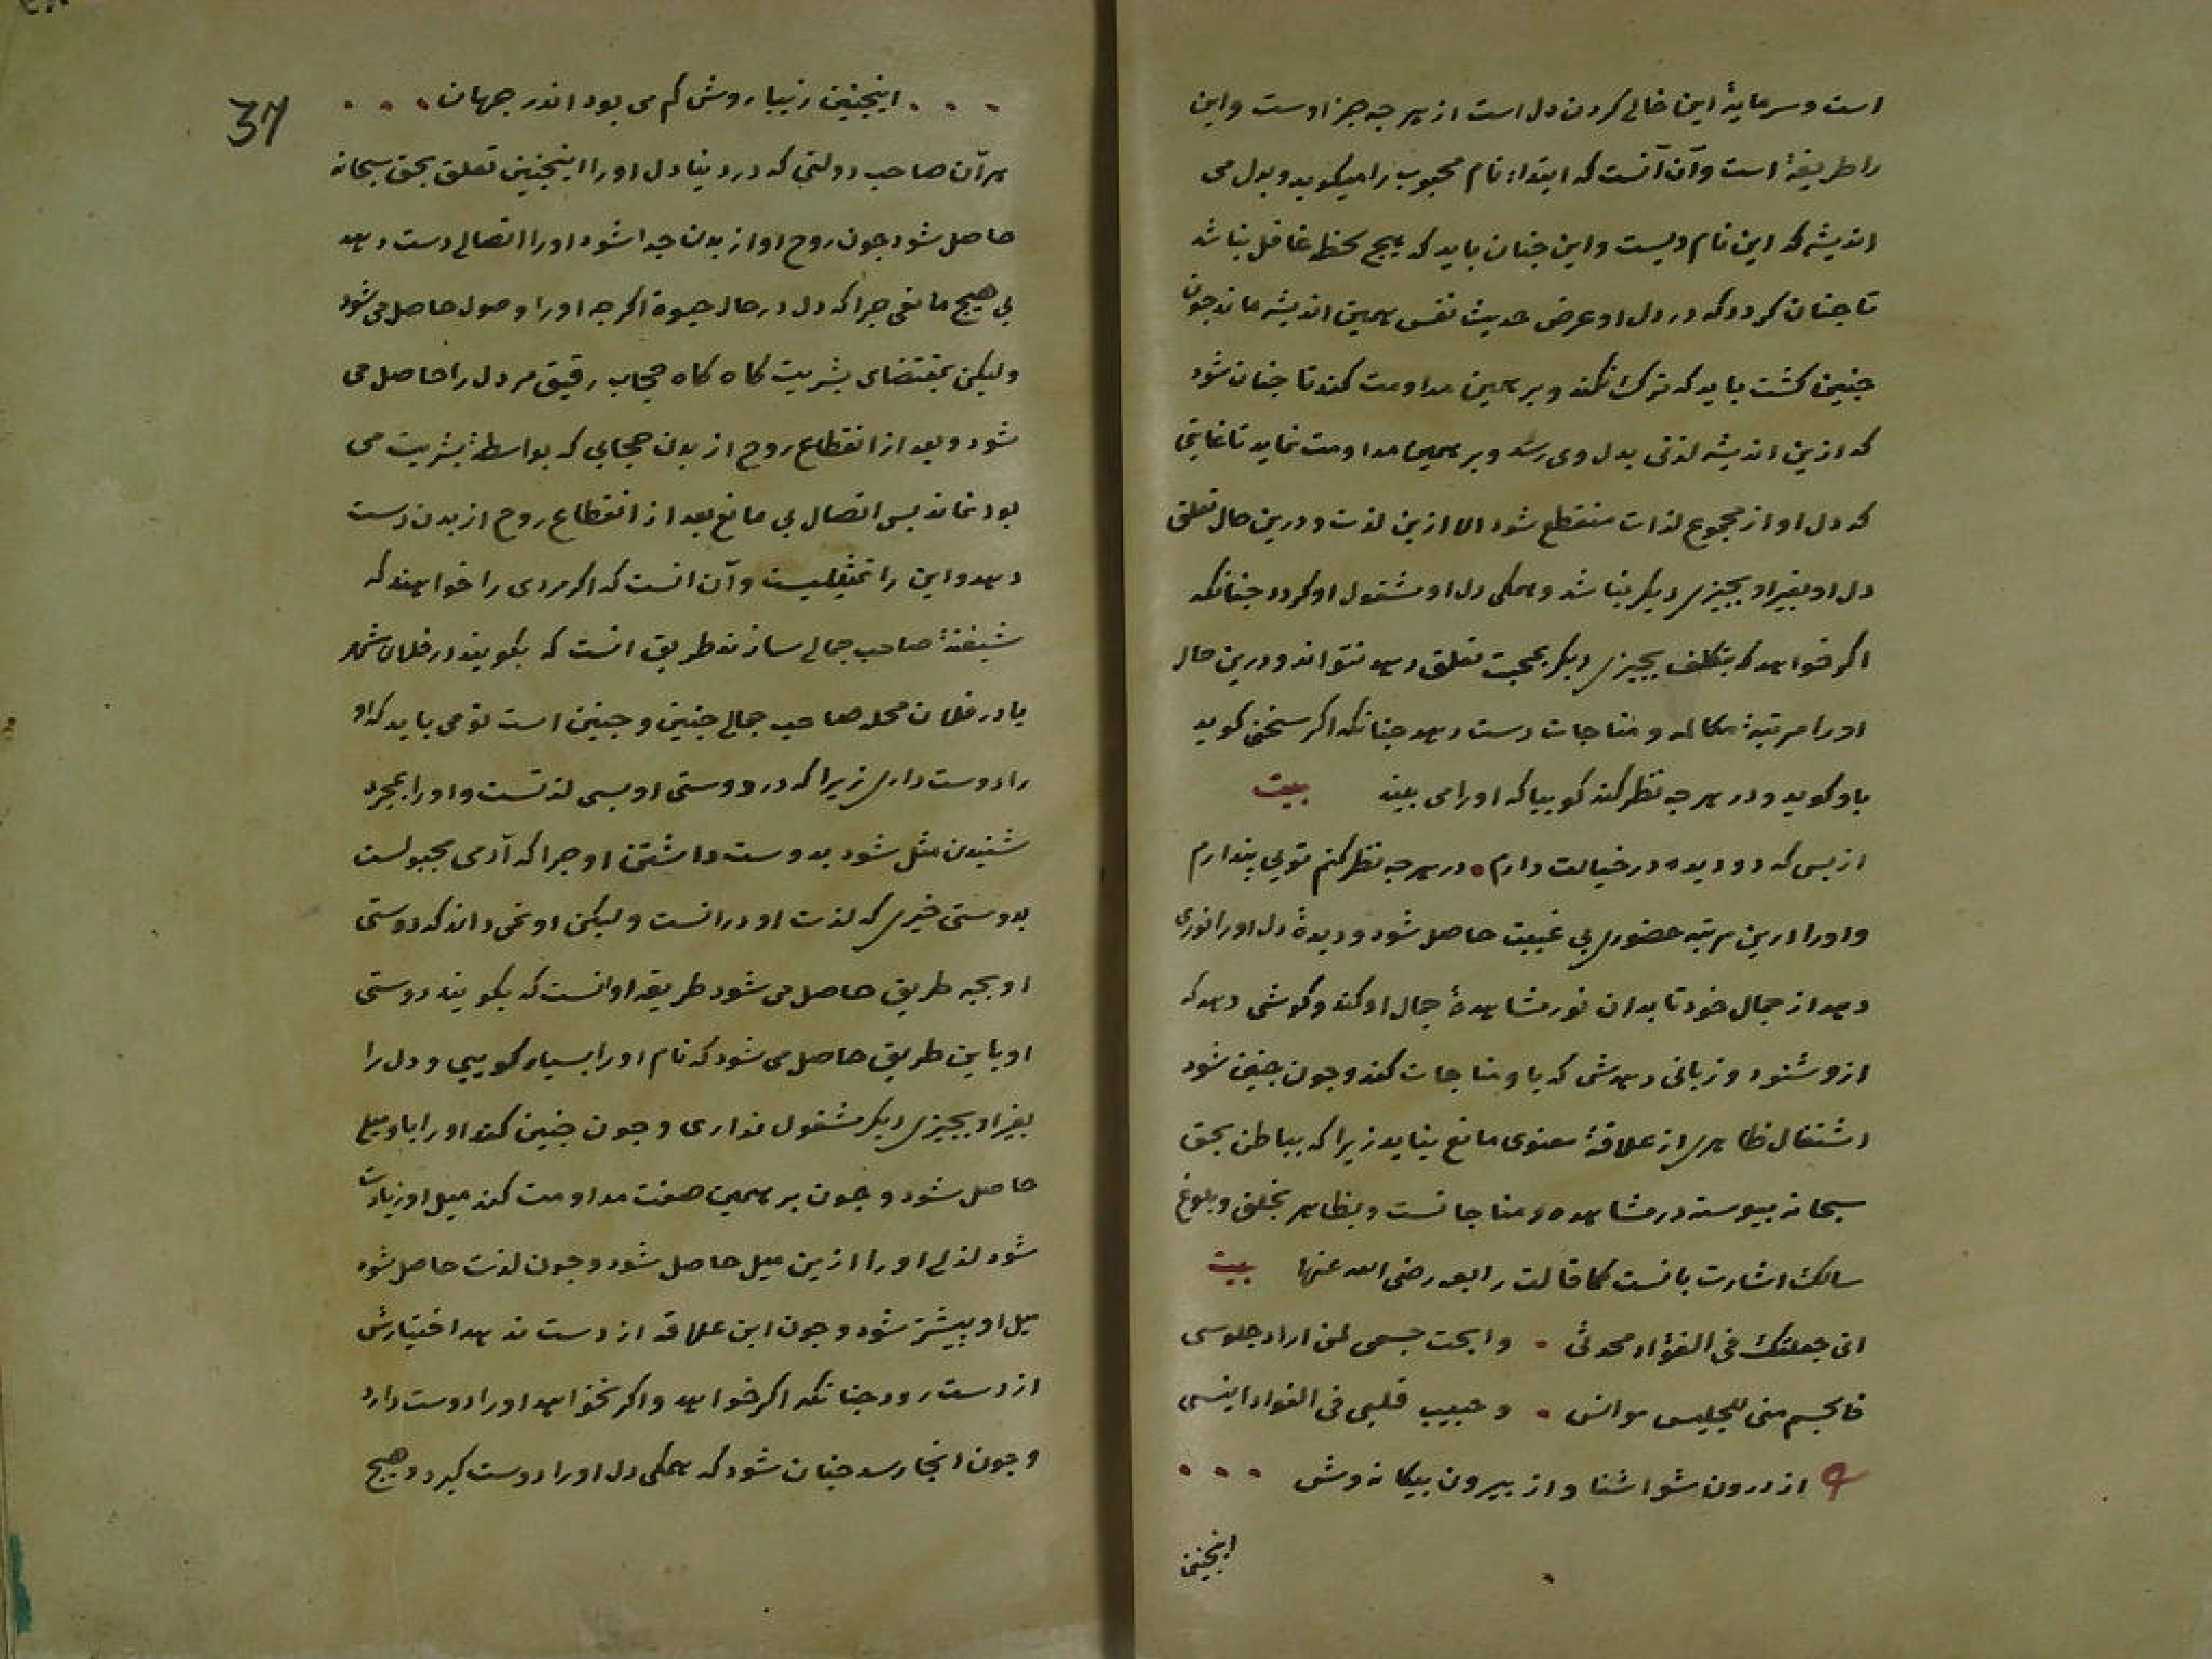 است و سرمایهٔ این خالی کردن دل است از هرچه جز اوست و این
را طریقهٔ است و آن آنست که ابتدا، نام محبوب را میکوید و بدل می
اندیشد که این نام ویست و این جنان باید که هیج لحظه غافل نباشد
تا جنان کردد که در دل او عرض حدیث نفس همین اندیشه ماند جون
جنین کشت باید که ترک نکند و بر همین مداومت کند تا جنان شود
که ازین اندیشه لذتی بدل وی رسد و بر همین مداومت نماید تا غایتی
که دل او از مجموع لذات منقطع شود الا ازین لذت و درین حال تعلق
دل او بغیر او بجیزی دیکر نباشد و همکی دل او مشغول او کردد جنانکه
اکر خواهد که بتکلف بجیزی دیکر بمحبت تعلق دهد نتواند و درین حال
او را مرتبهٔ مکالمه و مناجات دست دهد جنانکه اکر سخنی کوید
باو کوید و در هرجه نظر کند کوییا که او را می بیند بیت
از بس که دو دیده در خیالت دارم • در هرجه نظر کنم تویی بندارم
و او را درین مرتبه حضوری بی غیبت حاصل شود و دیدهٔ دل او را نوری
دهد از جمال خود تا بدان نور مشاهدهٔ جمال او کند و کوشی دهد که
ازو شنود و زبانی دهدش که باو مناجات کند و جون جنین شود
اشتغال ظاهری از علاقهٔ معنوی مانع نیاید زیرا که بباطن بحق
سبحانه بیوسته در مشاهده و مناجاتست و بظاهر بخلق و بلوغ
سالک اشارت بانست کما قالت رابعه رضی الله عنها بیت
انی جعلتک فی الفؤاد محدثی • وابحت جسمی لمن اراد جلوسی
فالجسم منی للجلیس موانس • وحبیب قلبی فی الفواد انیسی
از درون شو اشنا و از بیرون بیکانه وش • • •
اینجنین
37
• • • اینجنین زیبا روش کم می بود اندر جهان • • •
هر آن صاحب دولتی که در دنیا دل او را اینجنین تعلق بحق سبحانه
حاصل شود جون روح او از بدن جدا شود او را اتصالی دست دهد
بی هیج مانعی جرا که دل در حال حیوة اکرجه او را وصول حاصل می شود
ولیکن بمقتضای بشریت کاه کاه حجاب رقیق مر دل را حاصل می
شود و بعد از انقطاع روح از بدن حجابی که بواسطهٔ بشریت می
بود نماند بس اتصال بی مانع بعد از انقطاع روح از بدن دست
دهد و این را تمثیلیست و آن انست که اکر مردی را خواهند که
شیفتهٔ صاحب جمالی سازند طریق انست که بکویند در فلان شهر
یا در فلان محله صاحب جمالی جنین و جنین است تو می باید که او
را دوست داری زیرا که در دوستی او بسی لذتست و او را بمجرد
شنیدن مثل شود بدوست داشتن او جرا که آدمی مجبولست
بدوستی جیزی که لذت او درانست ولیکن او نمی داند که دوستی
او بجه طریق حاصل می شود طریقه او انست که بکویند دوستی
او باین طریق حاصل می شود که نام او را بسیار کویی و دل را
بغیر او بجیزی دیکر مشغول نداری و جون جنین کند او را باو میلی
حاصل شود و جون بر همین صفت مداومت کند میل او زیادت
شود لذتی او را ازین میل حاصل شود و جون لذت حاصل شود
میل او بیشتر شود و جون این علاقه از دست ندهد اختیارش
از دست رود جنانکه اکر خواهد و اکر نخواهد او را دوست دارد
و جون اینجا رسد جنان شود که همکی دل او را دوست کیرد و هیج